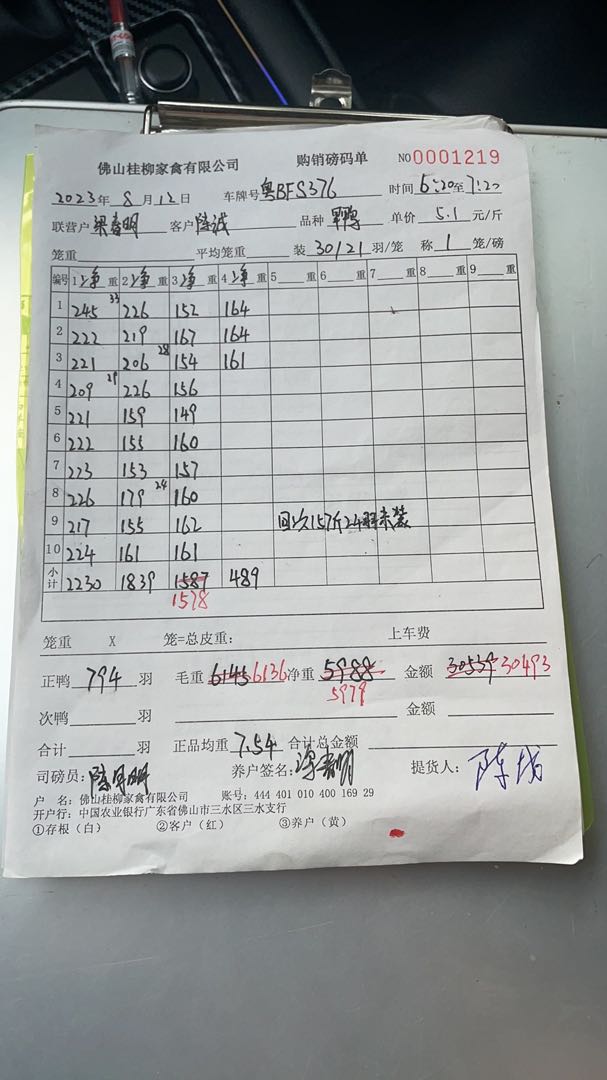 佛山桂柳家禽有限公司 购销磅码单 NO 0001219
2023年 8月 12日 车牌号 粤BFS376 时间 6:20至7:20
联营户 客户 陈诚 品种 单价 5.1 元/斤
笼重 平均笼重 装 30/21 羽/笼 称 1 笼/磅
编号 1 净 重 2 净 重 3 净 重 4 净 重 5 重 6 重 7 重 8 重 9 重
1 245 33 226 152 164
2 222 219 167 164
3 221 206 28 154 161
4 209 29 226 156
5 221 159 149
6 222 155 160
7 223 153 157
8 226 179 24 160
9 217 155 162 回次157斤24羽未装
10 224 161 161
小计 2230 1839 1587 489
1578
笼重 X 笼=总皮重: 上车费
正鸭 794 羽 毛重 6145 6136 净重 5988 金额 30539 30493
5979
次鸭 羽 金额
合计 羽 正品均重 7.54 合计总金额
司磅员: 养户签名: 提货人:
户 名: 佛山桂柳家禽有限公司 账号: 444 401 010 400 169 29
开户行: 中国农业银行广东省佛山市三水区三水支行
①存根(白) ②客户(红) ③养户(黄)